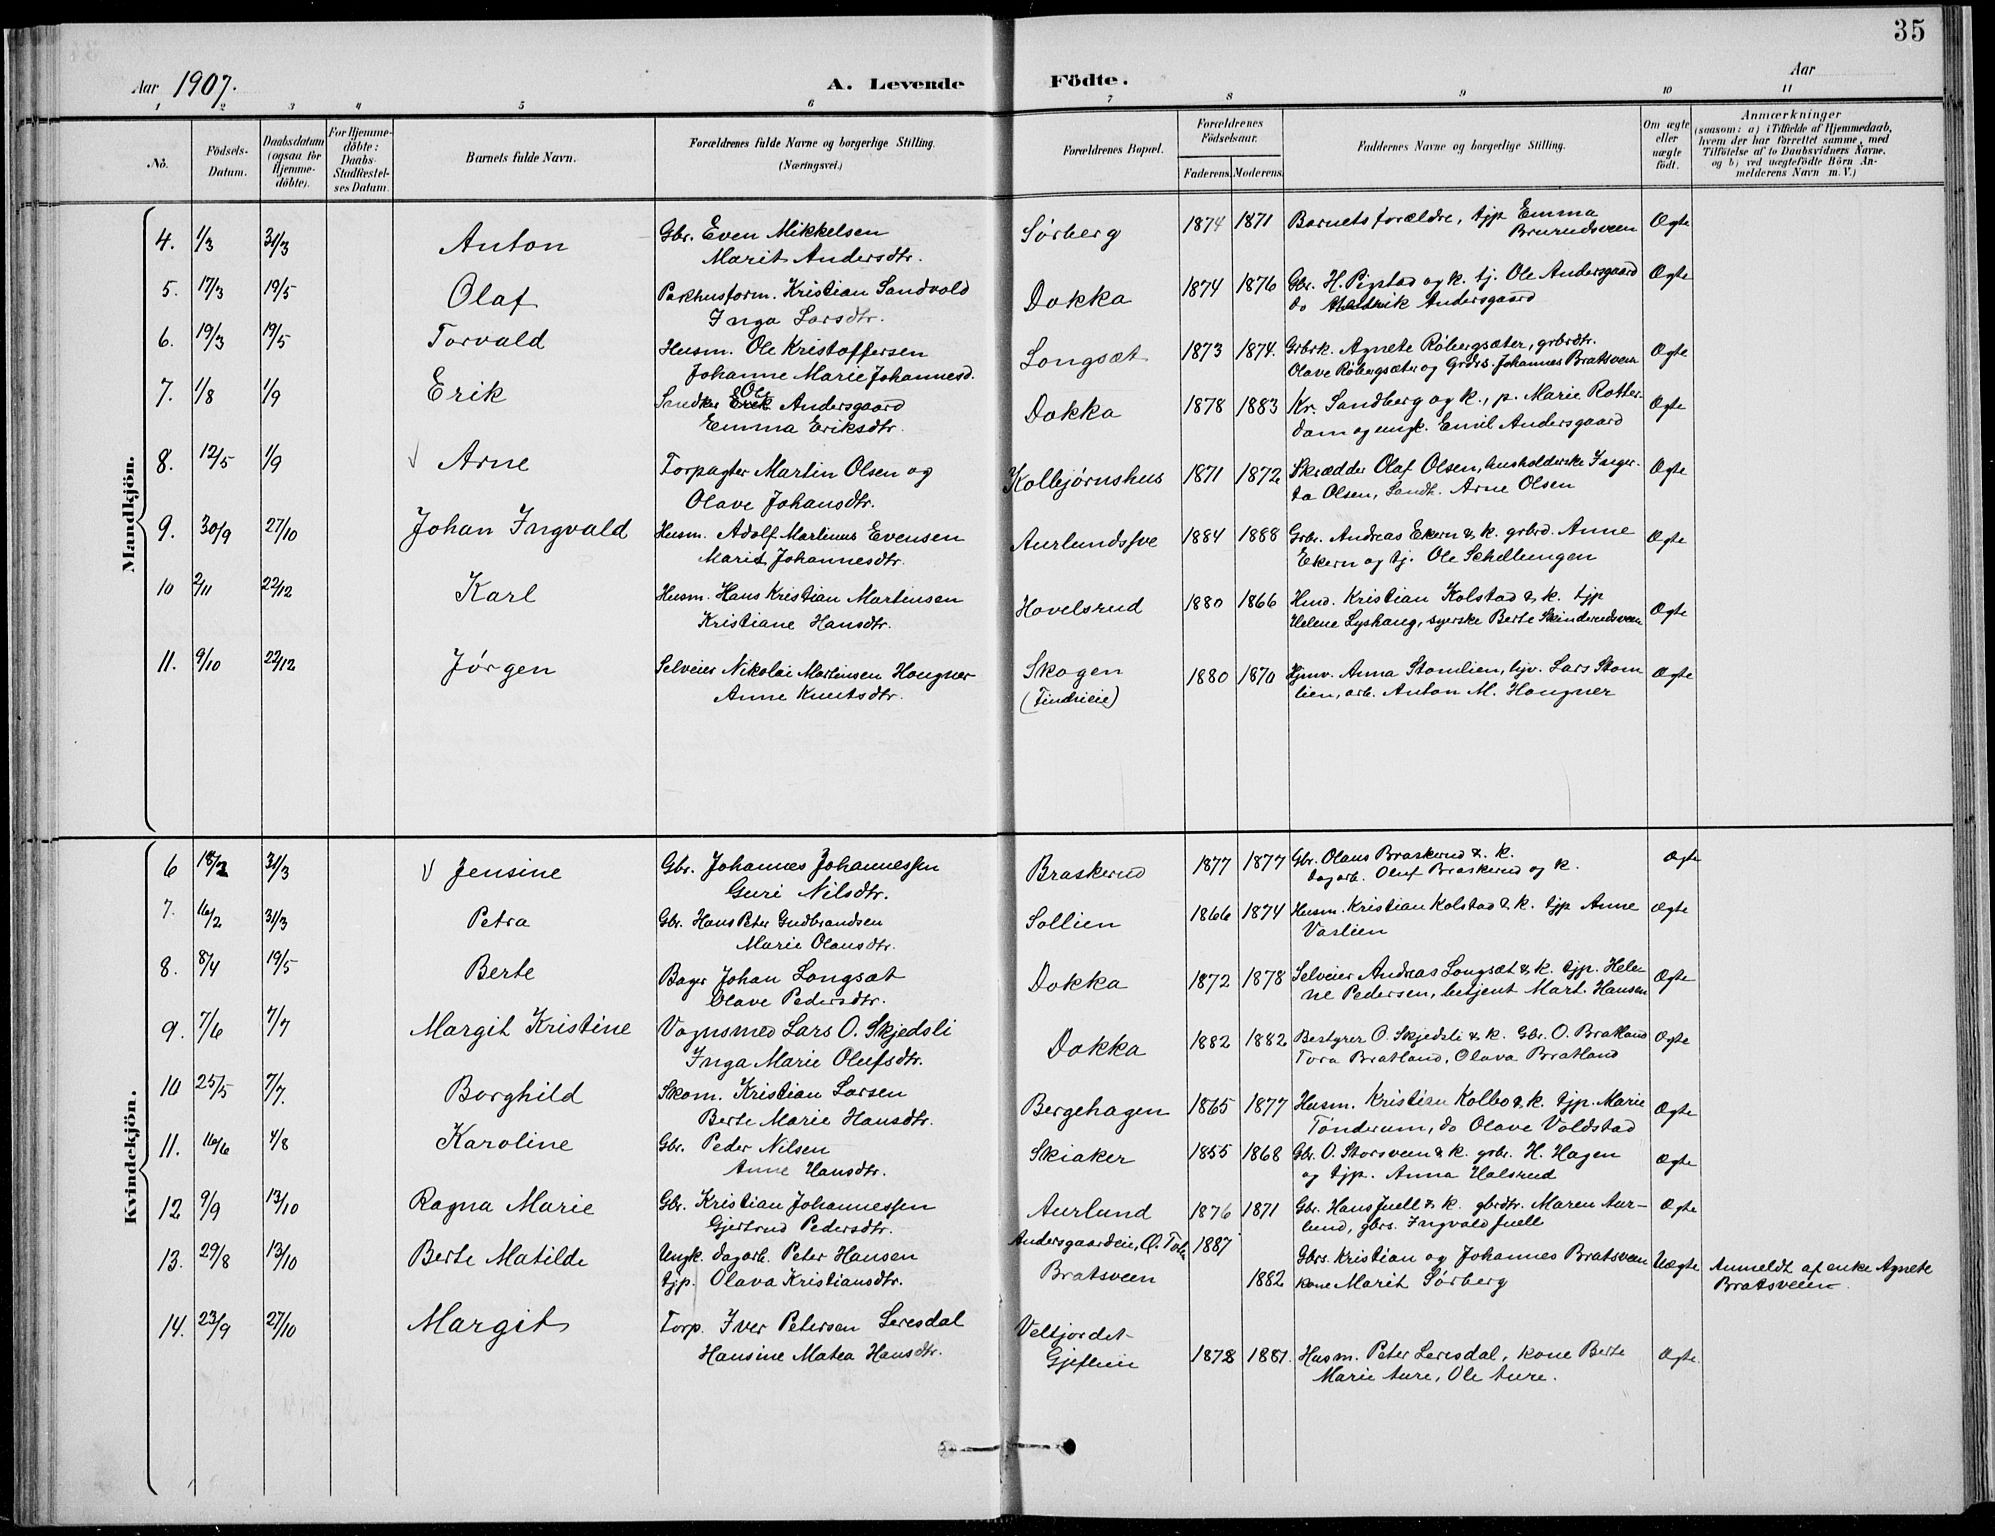 35
Aar 1907.
A. Levende Födte.
Aar
1 2 3 4 5 6 7 8 9 10 11
No.
Födsels-Datum.
Daabsdatum (ogsaa for Hjemme-döbte).
For Hjemme-döbte: Daabs-Stadfæstel-ses Datum.
Barnets fulde Navn.
Forældrenes fulde Navne og borgerlige Stilling.
(Næringsvei.)
Forældrenes Bopæl.
Forældrenes Födselsaar.
Faderens. Moderens.
Faddernes Navne og borgerlige Stilling.
Om ægte eller uægte födt.
Anmærkninger
(saasom: a) i Tilfælde af Hjemmedaab,
hvem der har forrettet samme, med
Tilföielse af to Daabsvidners Navne.
og b) ved uægtefödte Börn An-
melderens Navn m. V.)
Mandkjön.
4. 1/3 31/3 Anton Gbr. Even Mikkelsen Sørberg 1874 1871 Barnets forældre, tjp Emma Ægte
Marit Andersdtr. Brurudsveen
5. 17/3 19/5 Olaf Pakhusform. Kristian Sandvold Dokka 1874 1876 Gbr. H. Pigstad og k. tj. Ole Andersgaard Ægte
Inga Larsdtr. do Andersgaard
6. 19/3 19/5 Torvald Husm. Ole Kristoffersen Longsæt 1873 1874. Grbrk. Agnete Røbergsæter, grbrdtr. Ægte
Johanne Marie Johannesd. Olave Røbergsæter og Grdrs. Johannes Bratsveen
7. 1/8 1/9 Erik Ole Andersgaard Dokka 1878 1883 Kr. Sandberg og k., p. Marie Rotter- Ægte
Emma Eriksdtr. dam og ungk. Emil Andersgaard
8. 12/5 1/9 Arne Forpagter Martin Olsen og Kolbjørnshus 1871 1872 Skrædder Olaf Olsen, husholderske Inger- Ægte
Olave Johansdtr. ta Olsen, Sandh. Arne Olsen
9. 30/9 27/10 Johan Ingvald Husm. Adolf Martinus Evensen Aurlundsfve 1884 1888 Grbr. Andreas Ekern & k. grbrd. Anne Ægte
Marit Johannesdtr. Ekern og tj. Ole Schellungen
10 2/11 22/12 Karl Husm. Hans Kristian Martinsen Hovelsrud 1880 1866 Kristian Kolstad & k. tjp Ægte
Kristiane Hansdtr. Helene Lyshaug, syerske Berte Skinderudsveen
11. 9/10 22/12 Jørgen Selveier Nikolai Martinsen Haugner Skogen 1880 1870 Anna Stomlien, Lars Stom Ægte
Anne Knutsdtr. (Findlieie) lien, arb. Anton M. Haugner
Kvindekjön.
6 18/2 31/3 Jensine Gbr. Johannes Johannessen Braskerud 1877 1877 Gbr. Olaus Braskerud & k. Ægte
Guri Nilsdtr. dagarb. Oluf Braskerud og k.
7. 16/2 31/3 Petra Gbr. Hans Peter Gudbrandsen Sollien 1866 1874 Husm. Kristian Kolstad & k. tjp Anne Ægte
Marie Olausdtr. Vaslien
8. 8/4 19/5 Berte Bager Johan Longsæt Dokka 1872 1878 Selveier Andreas Longsæt & k. tjp. Hele Ægte
Olave Pedersdtr. ne Pedersen, betjent Mart. Hansen
9. 7/6 7/7 Margit Kristine Vognsmed Lars O. Skjedsli Dokka 1882 1882 Bestyrer O. Skjedsli & k. Gbr. O. Bratland Ægte
Inga Marie Olufsdtr. Tora Bratland, Olava Bratland
10 25/5 7/7. Borghild Skom. Kristian Larsen Bergehagen 1865 1877 Husm. Kristian Kolbo & k. tjp. Marie Ægte
Berte Marie Hansdtr. Tønderum, do Olave Voldstad
11. 16/6 4/8 Karoline Gbr. Peder Nilsen Skiaker 1855 1868 Gbr. O. Storsveen & k. grbr. H. Hagen Ægte
Anne Hansdtr. og tjp. Anna Halsrud
12 9/9 13/10 Ragna Marie Gbr. Kristian Johannessen Aurlund 1876 1871 Gbr. Hans Juell & k. gbrdtr. Maren Aur- Ægte
Gjertrud Pedersdtr. lund, gbrs. Ingvald Juell
13. 29/8 13/10 Berte Matilde Ungk. dagarb. Peter Hansen Andersgaardeie, 1887 Gbrs. Kristian og Johannes Bratsveen Uægte Anmeldt af enke Agnete
tjp. Olava Kristiansdtr. Bratsveen 1882 kone Marit Sørberg Bratsveien
14. 23/9 27/10 Margit Forp. Iver Petersen Leresdal Veltjordet-
Hansine Matea Hansdtr. Gjeflein 1878 1881. Husm. Peter Leresdal, kone Berte Ægte
Marie Aure, Ole Aure.